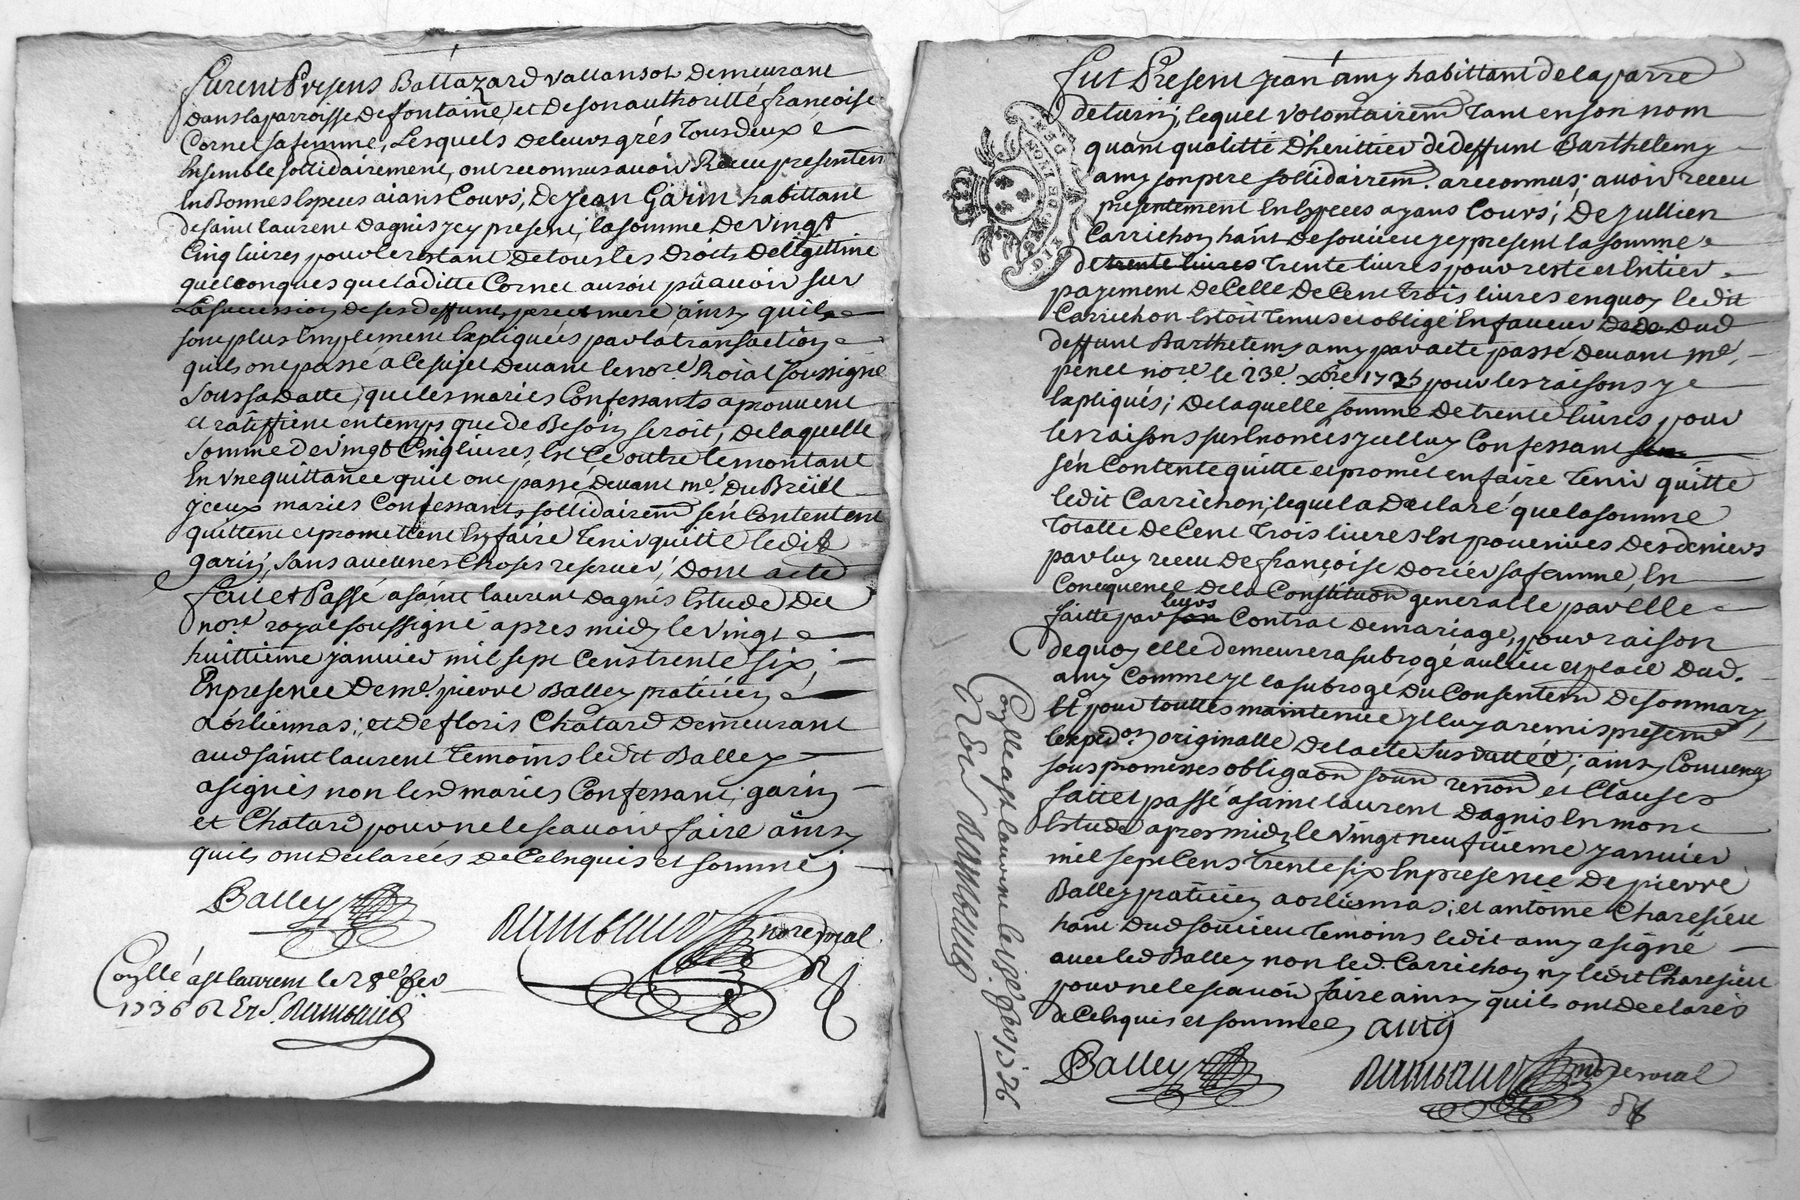 Furent Presens Baltazard Vallansot Demeurant
Dans la parroisse De fontaine, et De son authoritté françoise
Cornet sa femme, Lesquels De leurs grés Tous Deux
Ensemble sollidairement, ont reconnus avoir Receu presentem
En Bonnes Especes aians Cours, De Jean Garin habittant
De saint laurent Dagnis Jcy present, la somme De vingt
Cinq livres pour le restant De tous les Droits De ligitime
quelconques que laditte Cornet auroit pû avoir sur
La succession de ses deffunts pere et mere ainsy quils
sont plus Emplement Expliquées par la transaction
quils ont passé a ce sujet Devant le nore. Roial soussigné
sous sa Datte, que les mariés Confessants aprouvent
et ratiffient en temps que De Besoin seroit, De laquelle
somme De vingt Cinq livres, Est Ce outre le montant
En vne quittance quil ont passé Devant me. Du Breüil
yceux mariés Confessants sollidairem s'en Contentent
quittent et promettent En faire Tenir quitte ledit
garin, sans aucunes Choses reserver, Dont acte
fait et Passé a saint laurent Dagnis Estude Du
nore. royal soussigné apres midy le vingt
huittieme janvier mil sept Cens trente six,
En presence De me. pierre Balley praticien
a orliennas; et De floris Chatard Demeurant
aud saint laurent Temoins ledit Balley
a signés non lesd mariés Confessant, garin
et Chatard pour ne le scavoir faire ainsy
quils ont Declarées De Ce Enquis et sommé
Balley
nore roial
Conllé a st laurent le 28e
1736
Fut Present Jean Amy habittant de la parre
de turin, lequel volontairem Tant en son nom
quant qualitté D'herittier de deffunt Barthelemy
amy son pere sollidairem. a reconnus, avoir receu
presentement En Especes ayans Cours, De Jullien
Carrichon hant De soucieu Jcy present la somme
de trente livres Trente livres pour reste et Entier
payement De Celle De Cent Trois livres en quoy ledit
Carrichon Estoit Tenus et obligé En faveur Dud
deffunt Barthelemy amy par acte passé Devant me,
penet nore. le 23e. xbre pour les raisons y
Expliqués; De laquelle somme De trente livres pour
les raisons sus Enoncés Jcelluy Confessant
s'en Contente quitte et promet en faire Tenir quitte
ledit Carrichon; lequel a Declaré que la somme
Totalle De Cent Trois livres Est provenües Des deniers
par luy receu De françoise Dorier sa femme, En
Consequence De la Constituon generalle par Elle
faitte par leurs Contrat De mariage, pour raison
De quoy elle Demeurera subrogé au lieu et place Dud.
amy Comme yl la subrogé Du Consentem De son mary,
Et pour touttes maintenüe yl luy a remis presentem
l'expedon originalle De l'acte sus datté; ainsy Convenu
sous promesses obligaon soum renon et Clauses
fait et passé a saint laurent Dagnis En mon
Estude apres midy le vingt neufvieme janvier
mil sept Cens Trente six En presence De pierre
Balley praticien a orliennas; et antoine Charesieu
hant Dud soucieu Temoins ledit amy a signé
avec led Balley non led. Carrichon ny ledit Charesieu
pour ne le scavoir faire ainsy quils ont Declarés
De Ce Enquis et sommés, amy
Balley
nore roial
Conllé a st laurent le